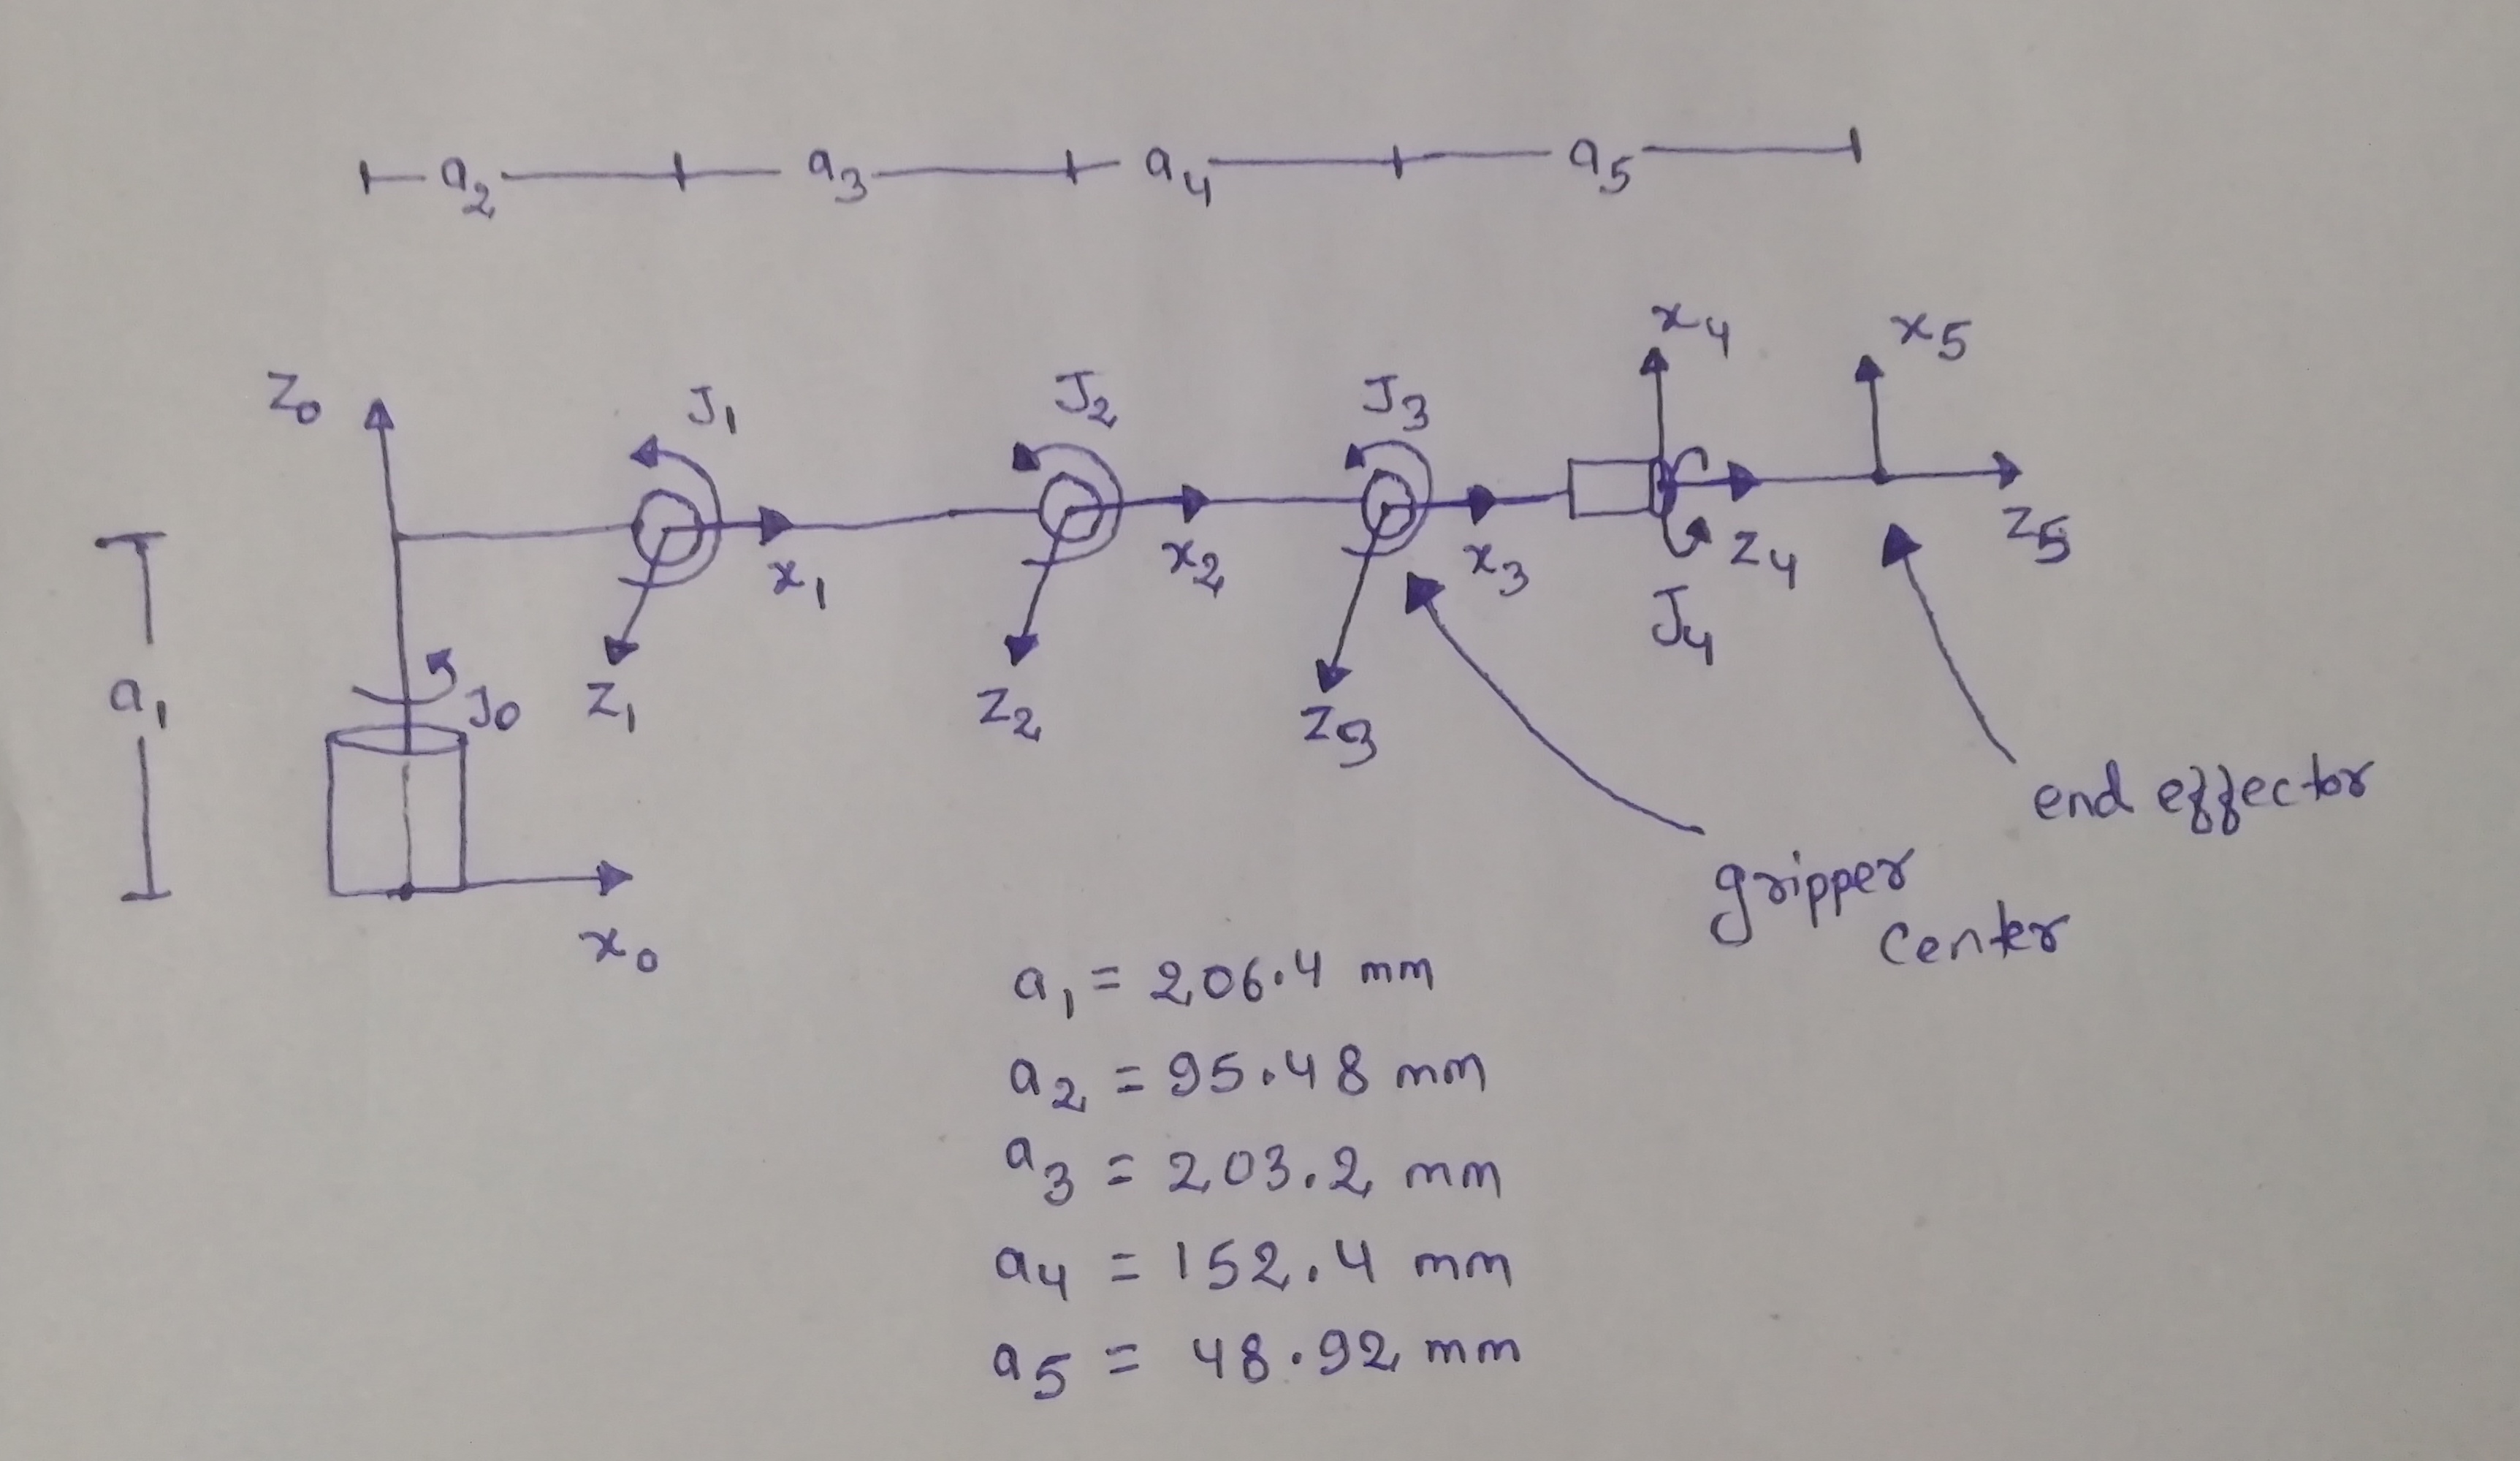 a2 a3 a4 a5
x4 x5
Z0 J1 J2 J3
x1 x2 x3 Z4 Z5
J4
a1 J0 Z1 Z2 Z3
end effector
gripper
center
x0
a1 = 206.4 mm
a2 = 95.48 mm
a3 = 203.2 mm
a4 = 152.4 mm
a5 = 48.92 mm